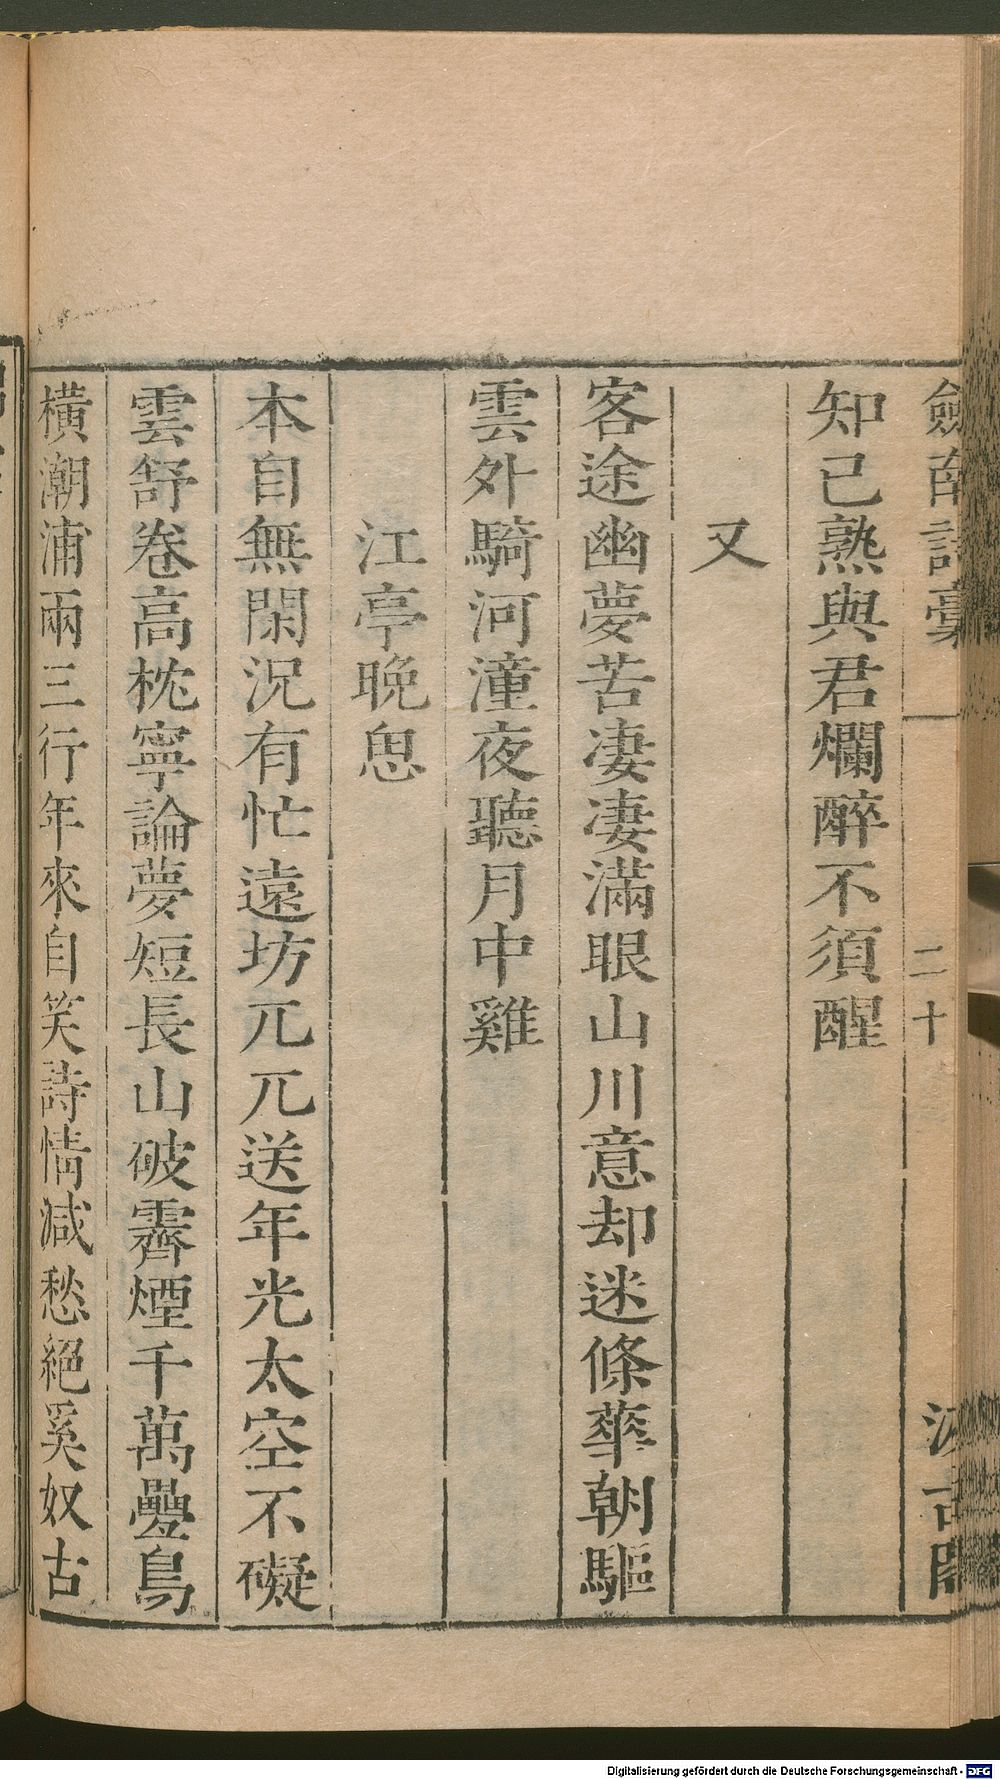 劒南詩稾 二十 汲古閣
知己熟與君爛醉不須醒
又
客途幽夢苦凄凄滿眼山川意却迷條華朝驅
雲外騎河潼夜聽月中雞
江亭晚思
本自無閑況有忙遠坊兀兀送年光太空不礙
雲舒卷高枕寧論夢短長山破霽煙千萬疊鳥
橫潮浦兩三行年來自笑詩情減愁絕奚奴古
Digitalisierung gefördert durch die Deutsche Forschungsgemeinschaft - DFG